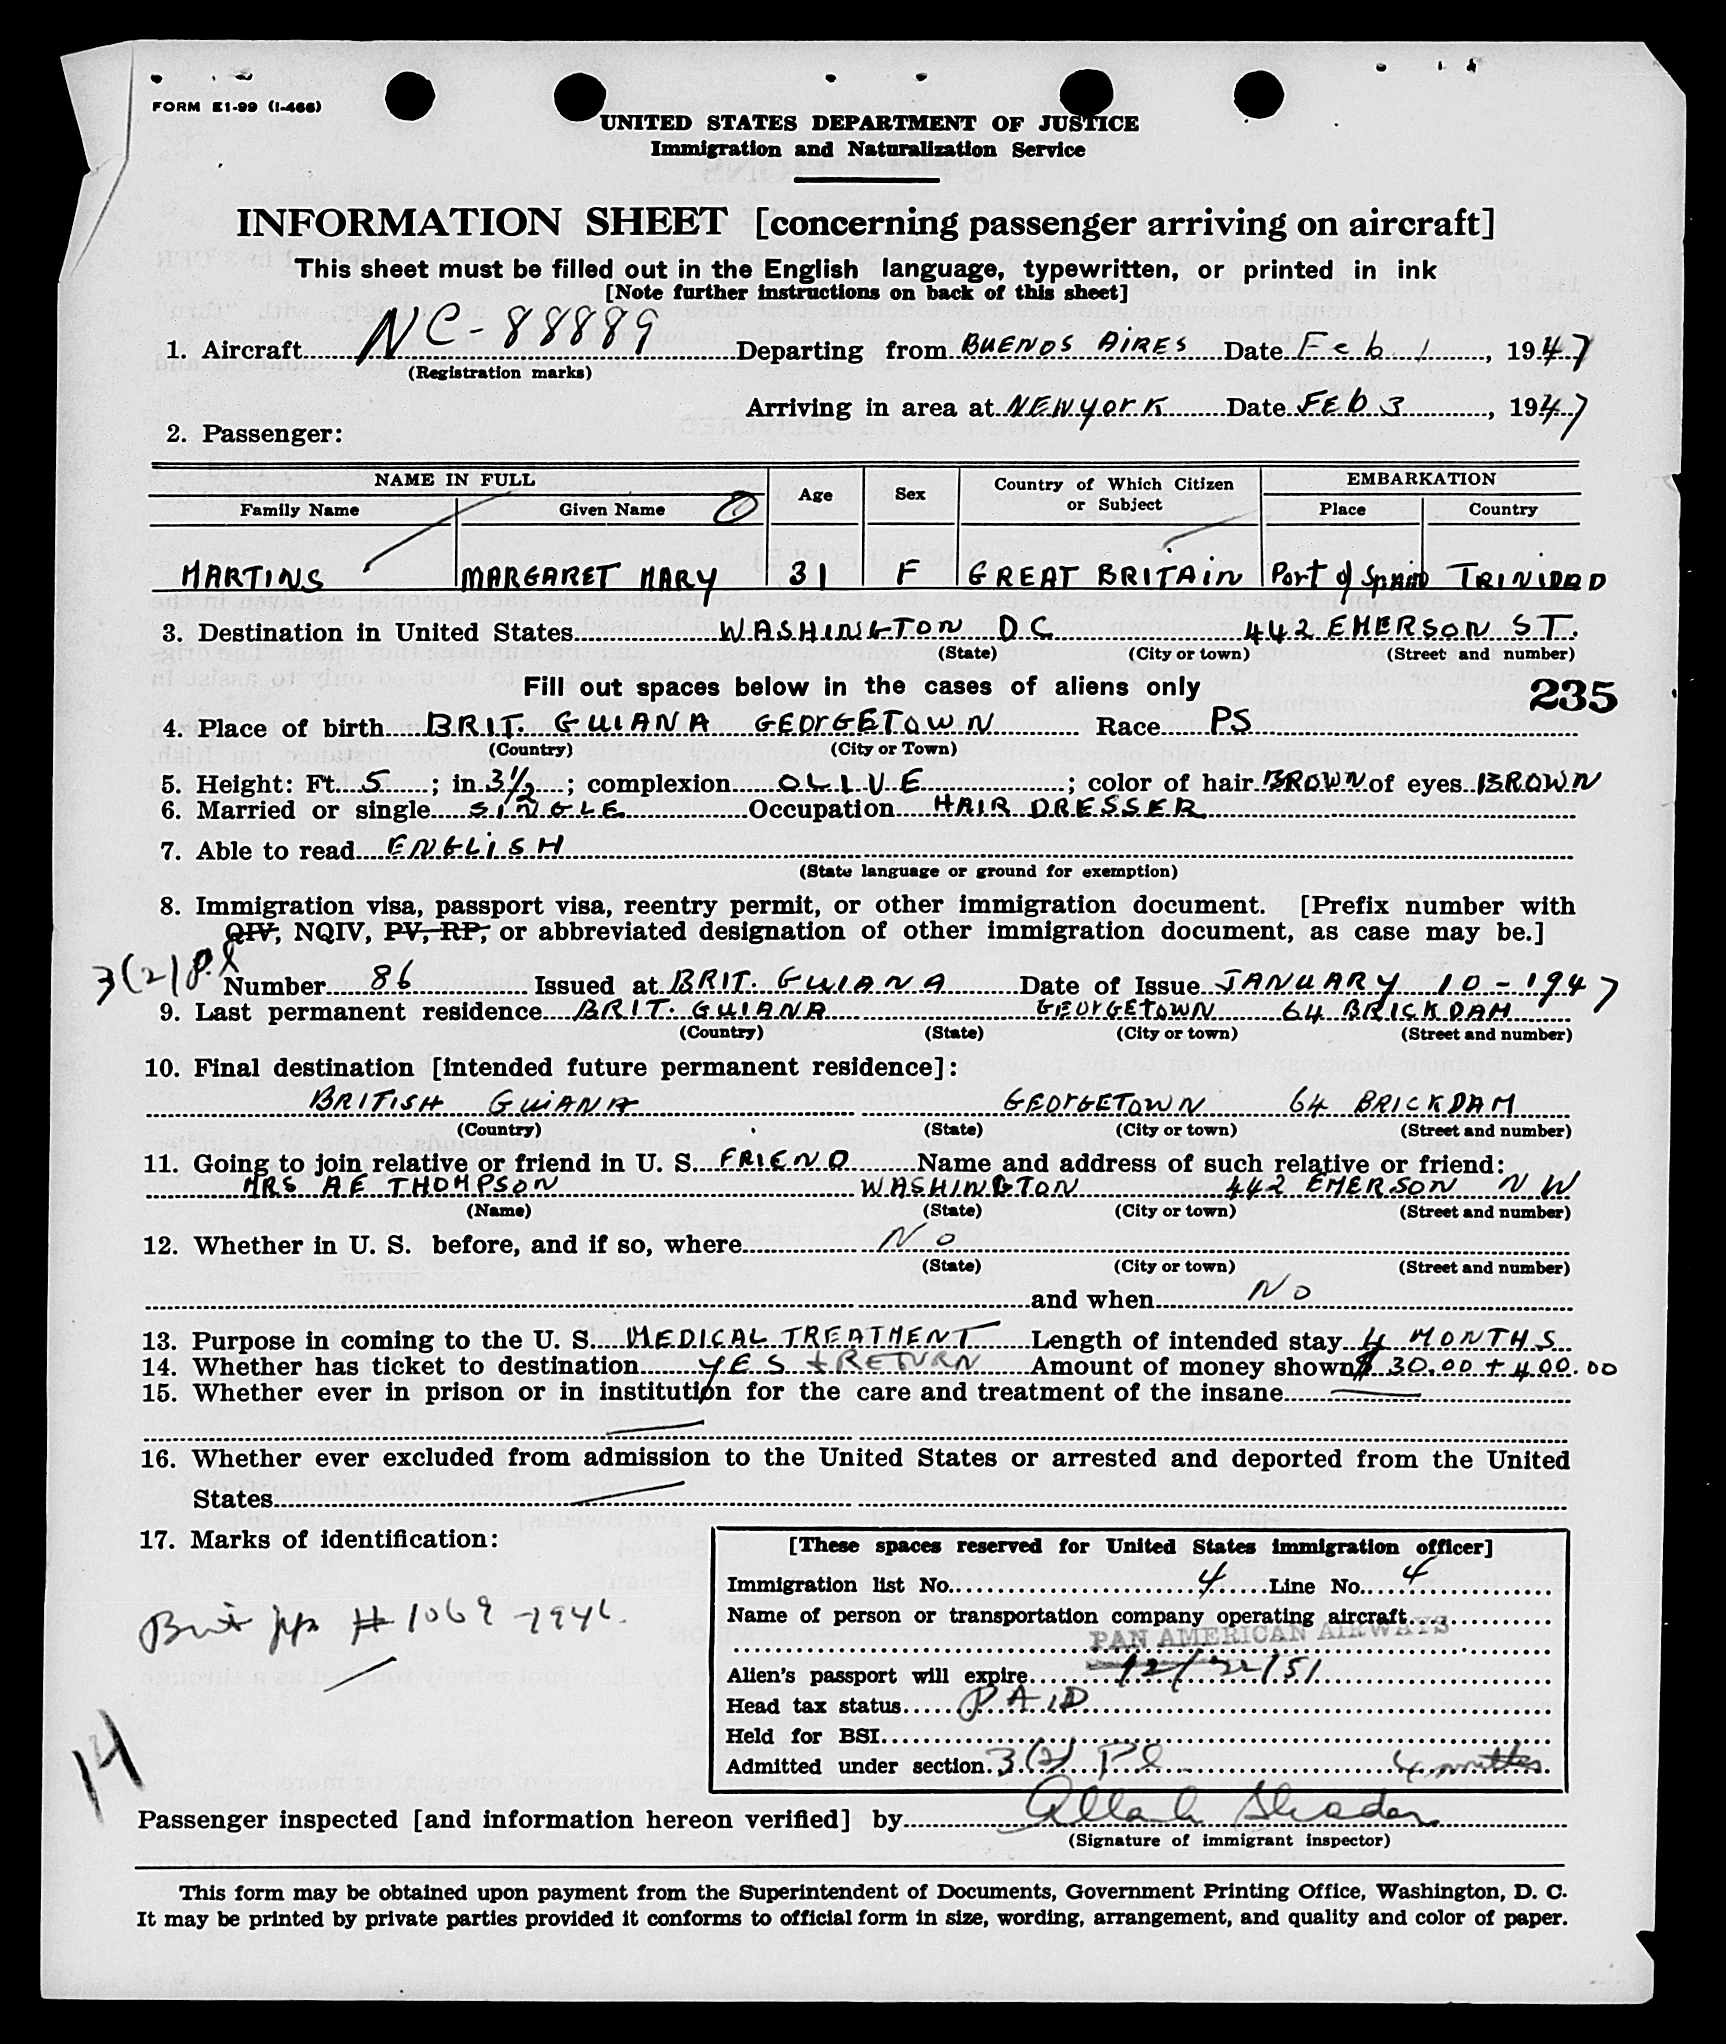 FORM E1-99 (I-466)
UNITED STATES DEPARTMENT OF JUSTICE
Immigration and Naturalization Service
INFORMATION SHEET [concerning passenger arriving on aircraft]
This sheet must be filled out in the English language, typewritten, or printed in ink
[Note further instructions on back of this sheet]
1. Aircraft NC-88889 Departing from BUENOS AIRES Date Feb 1, 1947
(Registration marks)
Arriving in area at NEW YORK Date FEB 3, 1947
2. Passenger:
NAME IN FULL Age Sex Country of Which Citizen or Subject EMBARKATION
Family Name Given Name Place Country
MARTINS MARGARET MARY 31 F GREAT BRITAIN Port of Spain TRINIDAD
3. Destination in United States WASHINGTON DC 442 EMERSON ST.
(State) (City or town) (Street and number)
Fill out spaces below in the cases of aliens only
235
4. Place of birth BRIT. GUIANA GEORGETOWN Race PS
(Country) (City or Town)
5. Height: Ft. 5; in 3½; complexion OLIVE; color of hair BROWN of eyes BROWN
6. Married or single SINGLE Occupation HAIR DRESSER
7. Able to read ENGLISH
(State language or ground for exemption)
8. Immigration visa, passport visa, reentry permit, or other immigration document. [Prefix number with
QIV, NQIV, PV, RP, or abbreviated designation of other immigration document, as case may be.]
3(2) P.L Number 86 Issued at BRIT. GUIANA Date of Issue JANUARY 10-1947
9. Last permanent residence BRIT. GUIANA GEORGETOWN 64 BRICKDAM
(Country) (State) (City or town) (Street and number)
10. Final destination [intended future permanent residence]:
BRITISH GUIANA GEORGETOWN 64 BRICKDAM
(Country) (State) (City or town) (Street and number)
11. Going to join relative or friend in U. S. FRIEND Name and address of such relative or friend:
MRS AE THOMPSON WASHINGTON 442 EMERSON N W
(Name) (State) (City or town) (Street and number)
12. Whether in U. S. before, and if so, where No
(State) (City or town) (Street and number)
and when No
13. Purpose in coming to the U. S. MEDICAL TREATMENT Length of intended stay 4 MONTHS
14. Whether has ticket to destination YES + RETURN Amount of money shown $ 30.00 + 400.00
15. Whether ever in prison or in institution for the care and treatment of the insane
16. Whether ever excluded from admission to the United States or arrested and deported from the United
States
17. Marks of identification:
[These spaces reserved for United States immigration officer]
Immigration list No. 4 Line No. 4
Name of person or transportation company operating aircraft
PAN AMERICAN AIRWAYS
Brit pp # 1069 -1946
Alien's passport will expire 12/22/51
Head tax status PAID
Held for BSI
Admitted under section 3(2) PL 4 months
14
Passenger inspected [and information hereon verified] by
(Signature of immigrant inspector)
This form may be obtained upon payment from the Superintendent of Documents, Government Printing Office, Washington, D. C.
It may be printed by private parties provided it conforms to official form in size, wording, arrangement, and quality and color of paper.